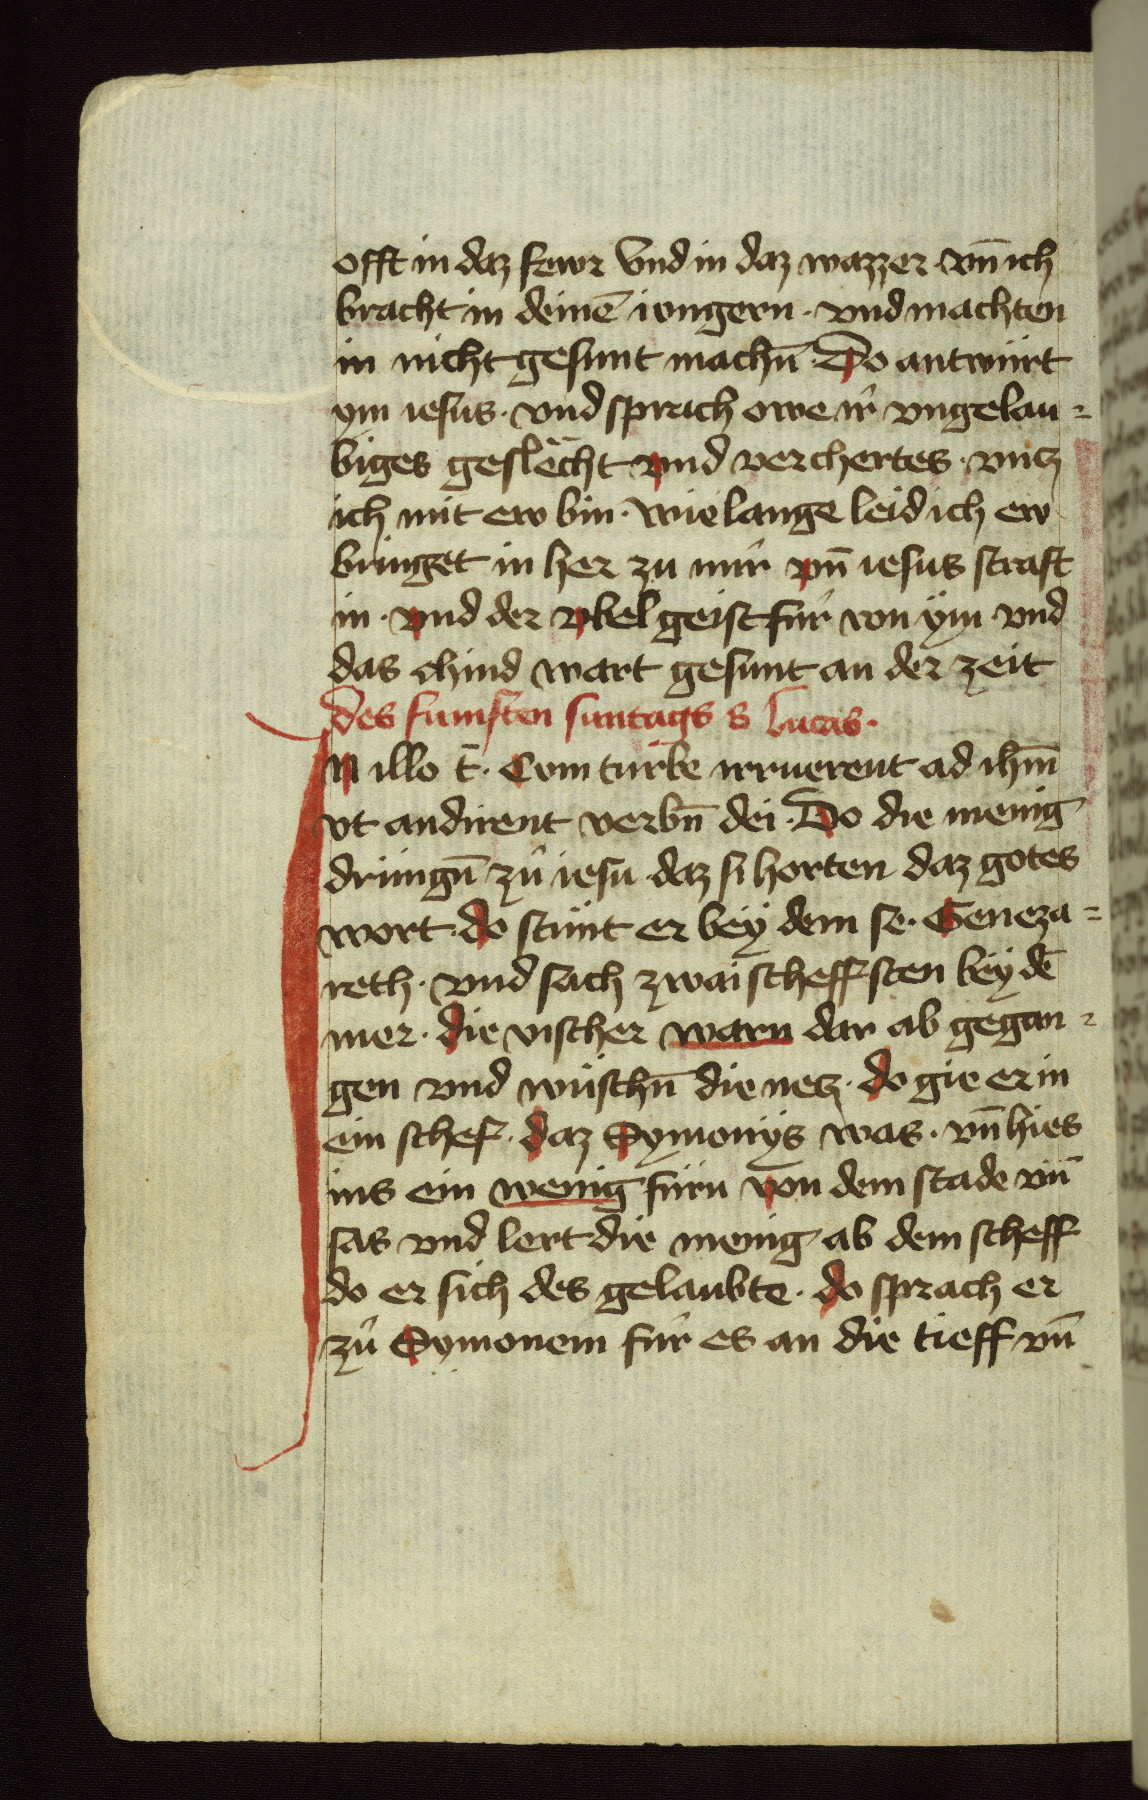 offt in daz fewr Vnd in daz wazzer vn̄ ich
bracht in deinē iungern · vnd machten
in nicht gesunt machn̄ · Do antwürt
ym iesus · vnd sprach owe ir vngelau=
biges geslëcht vnd verchertes · vntz
ich mit ew bin · wie lange leid ich ew
bringet in her zu mir vn̄ iesus straft
in · vnd der vbel geist für von ÿm · vnd
das chind wart gesunt an der zeit
des fumften suntags s lucas ·
In illo t̄ · Com turbe irruerent ad ihm̄
vt audirent verbn̄ dei · Do die menig
drüngn̄ zů iesu daz si horten daz gotes
wort · do stünt er beÿ dem se · Geneza=
reth · vnd sach zwai scheff sten beÿ dē
mer · die vischer warn dar ab gegan=
gen vnd wüschn̄ die netz · do gie er in
ein schef · daz Symonÿs was · vn̄ hies
ins ein wenig fürn von dem stade vn̄
sas vnd lert die menig ab dem scheff
do er sich des gelaubte · do sprach er
zů Symonem für es an die tieff vn̄